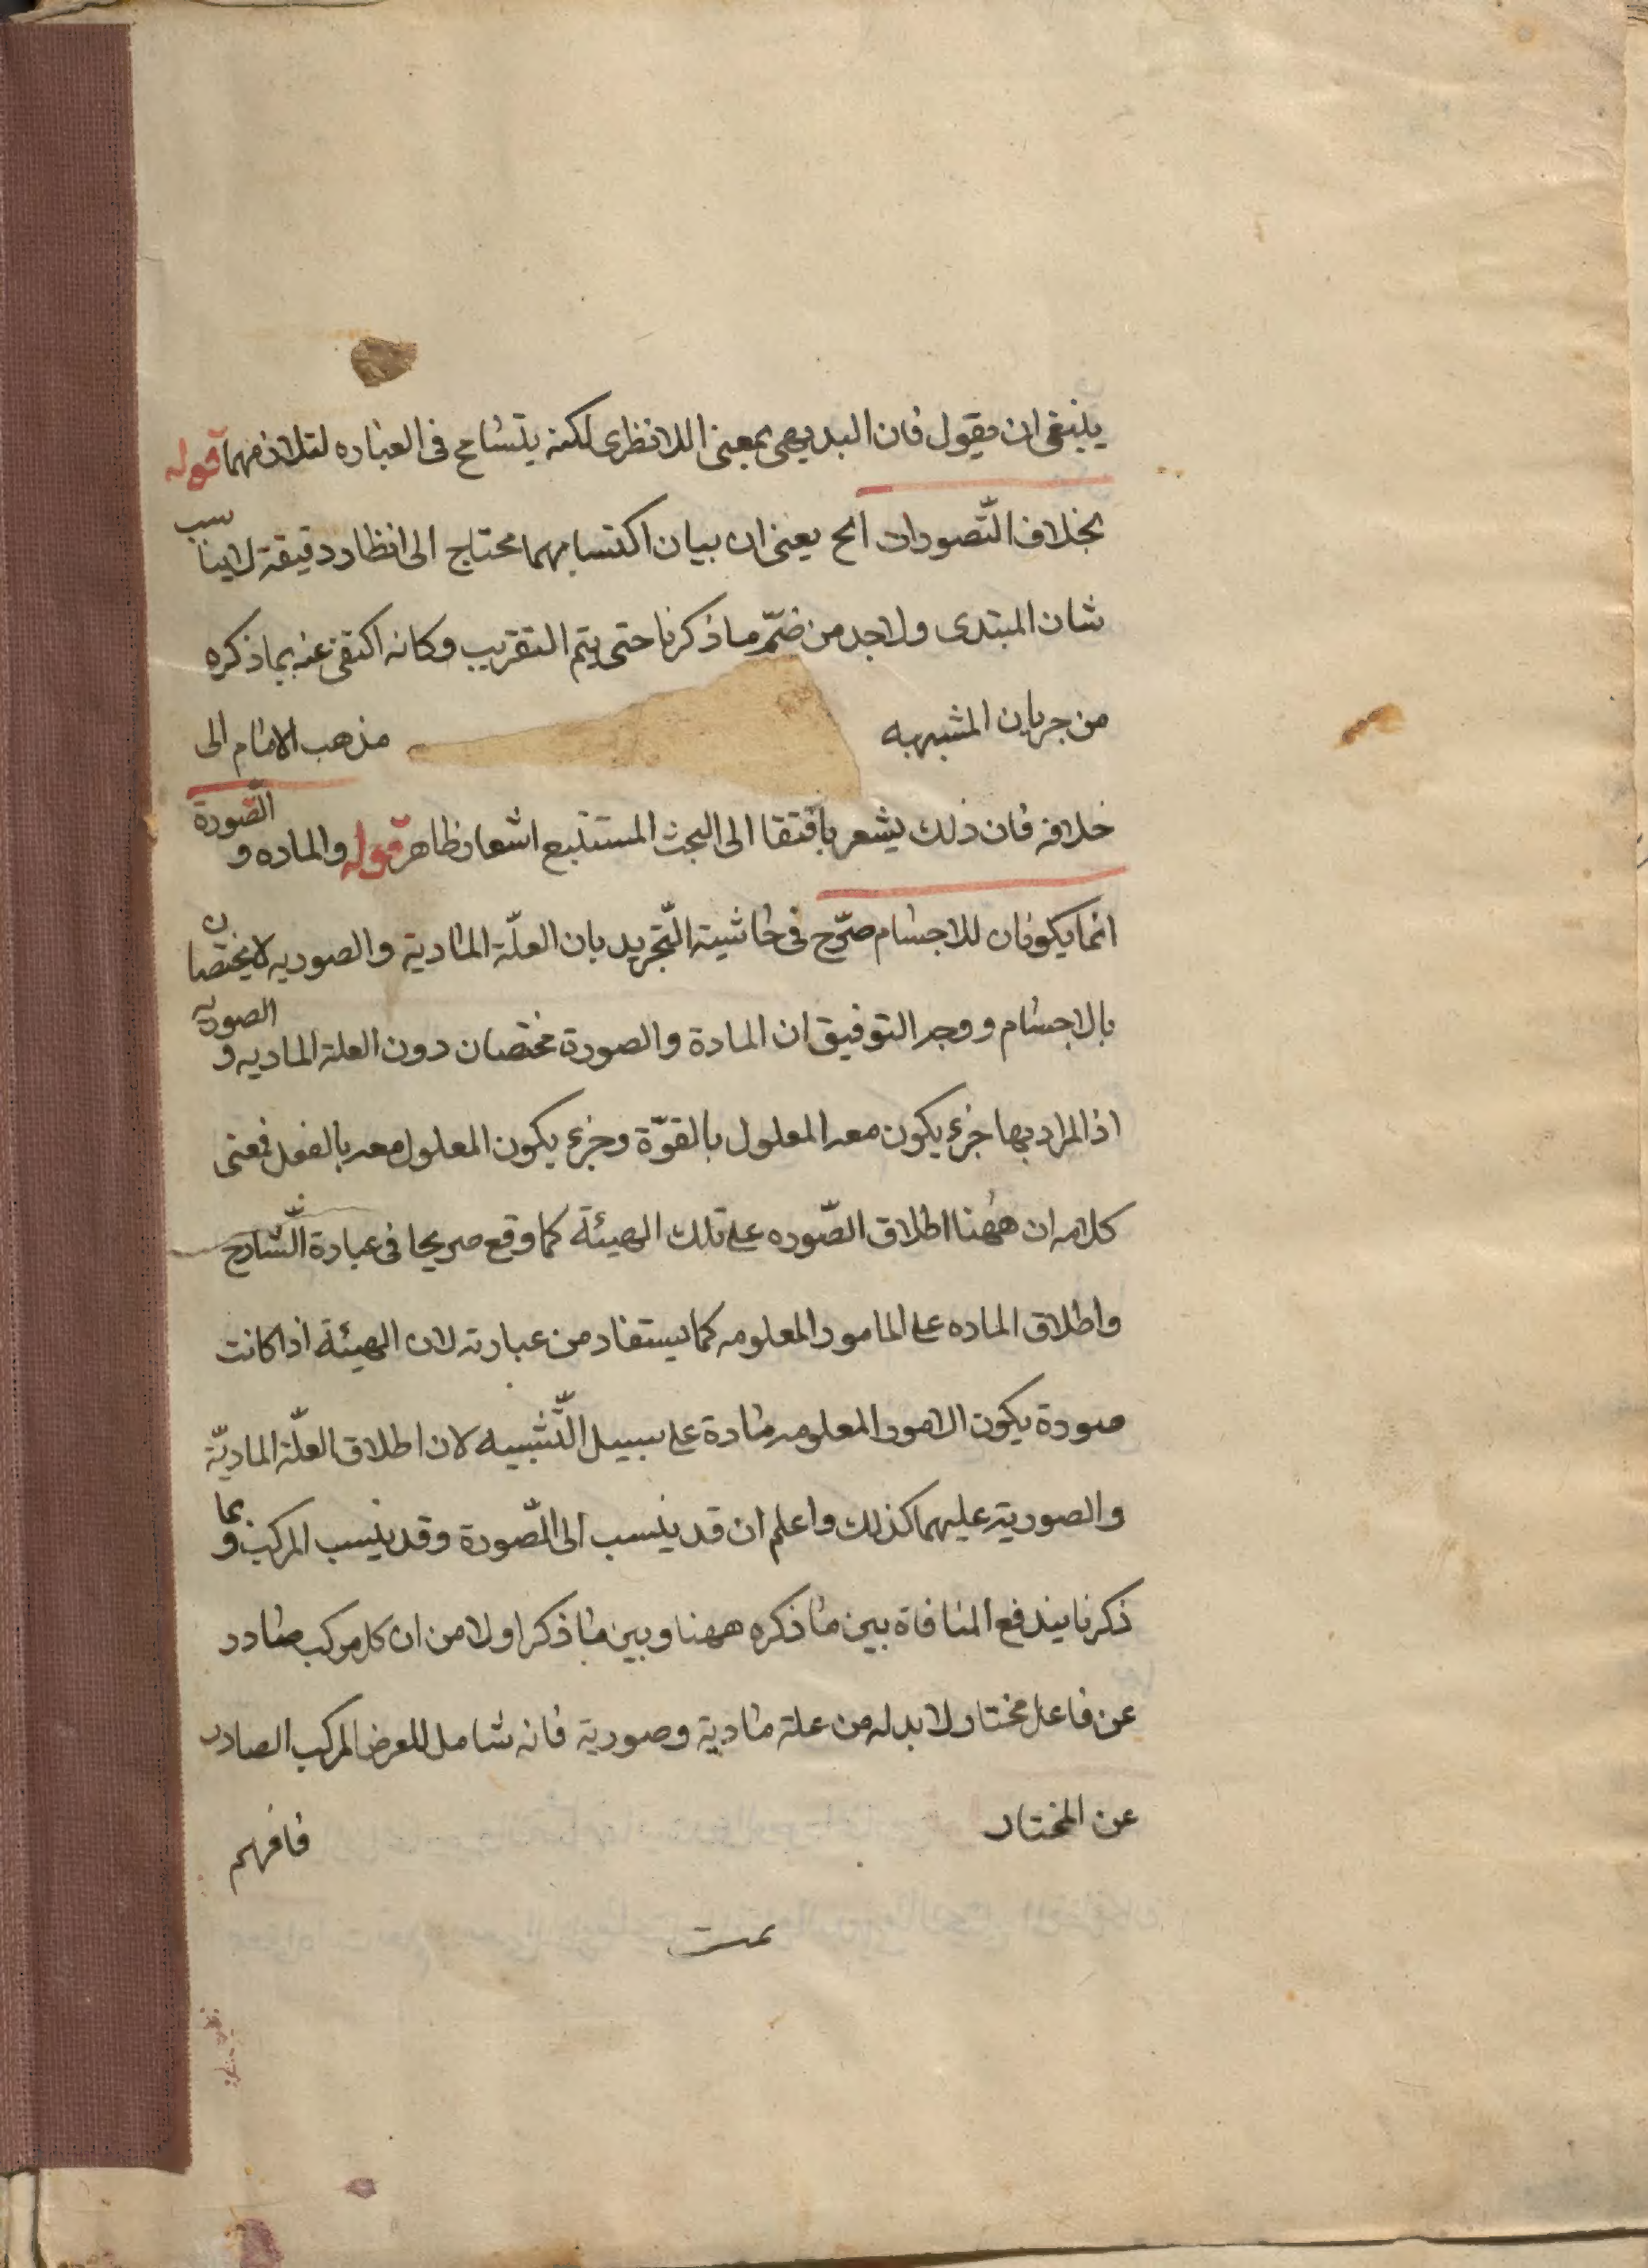 ينبغى ان يقول فان البديهى بمعنى اللانظرى لكنه يتسامح فى العباره لتلازمهما قوله
بخلاف التّصورات الخ يعنى ان بيان اكتسابهما محتاج الى انظار دقيقة لايناسب
شان المبتدى ولابد من ضمّ ما ذكرنا حتى يتم التقريب وكانه اكتفى عنه بما ذكره
من جريان المشبهه مذهب الامام الى
خلافه فان ذلك يشعر بافتقا الى البحث المستتبع اشعار ظاهر قوله والماده و الصّورة
انما يكونان للاجسام صرّح فى حاشية التّجريد بان العلّة المادية والصوريه لا يختصان
بالاجسام ووجه التوفيق ان المادة والصورة مختصان دون العلة الماديه و الصوريه
اذ المراد بها جزء يكون معه المعلول بالقوّة وجزء يكون المعلول معه بالفعل فمعنى
كلامه ان ههُنا اطلاق الصّوره على تلك الهيئة كما وقع صريحا فى عبارة الشّارح
واطلاق الماده على المامور المعلومه كما يستفاد من عبارته لان الهيئة اذا كانت
صورة يكون الامور المعلومه مادة على سبيل التّشبيه لان اطلاق العلّة الماديّة
والصورية عليهما كذلك واعلم ان قد ينسب الى الصّورة وقد ينسب المركب و بما
ذكرنا يندفع المنافاة بين ما ذكره ههنا وبين ما ذكر اولا من ان كل مركب صادر
عن فاعل مختار لا بد له من علة مادية وصورية فانه شامل للعرض المركب الصادر
عن المختار فافهم
تمت